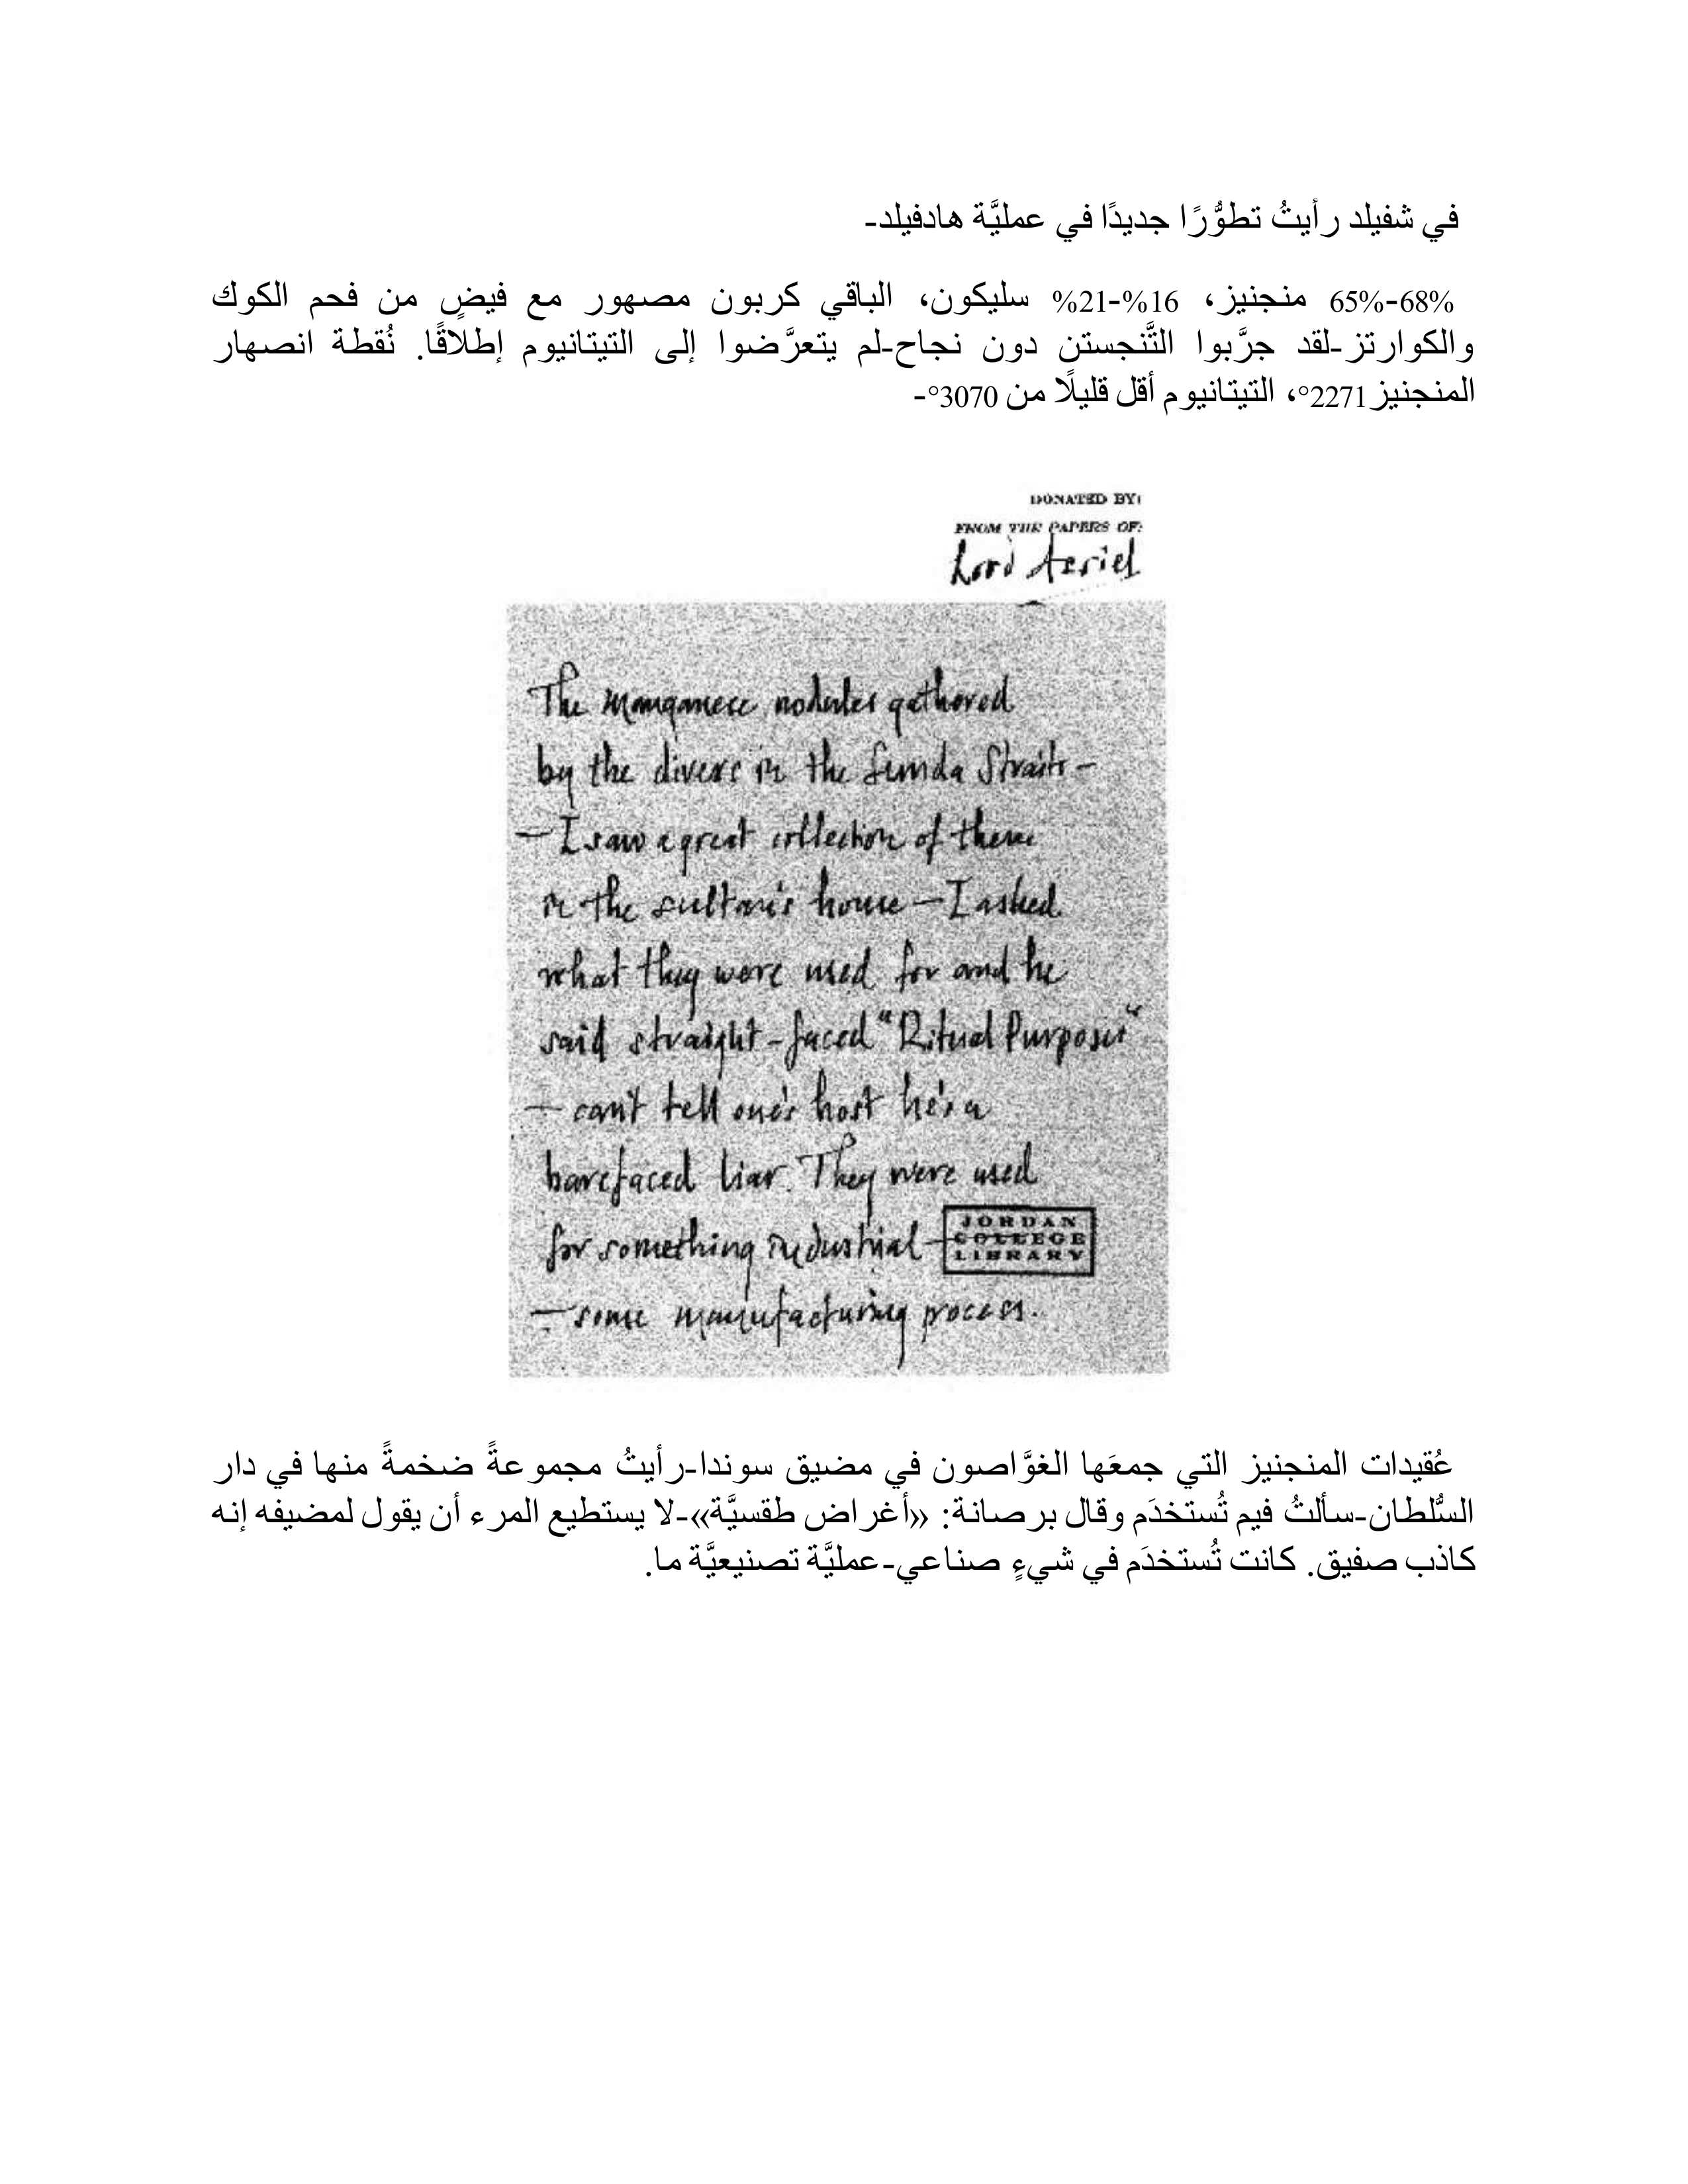 في شفيلد رأيتُ تطوُّرًا جديدًا في عمليَّة هادفيلد-
65%-68% منجنيز، 16%-21% سليكون، الباقي كربون مصهور مع فيضٍ من فحم الكوك
والكوارتز-لقد جرَّبوا التَّنجستن دون نجاح-لم يتعرَّضوا إلى التيتانيوم إطلاقًا. نُقطة انصهار
المنجنيز2271°، التيتانيوم أقل قليلًا من 3070°-
DONATED BY:
FROM THE PAPERS OF:
Lord Asriel
The manganese nodules gathered
by the divers in the Sunda Straits –
– I saw a great collection of them
in the sultan's house – I asked
what they were used for and he
said straight-faced "Ritual Purposes"
– can't tell one's host he's a
barefaced liar. They were used
for something industrial –
JORDAN
COLLEGE
LIBRARY
– some manufacturing process.
عُقيدات المنجنيز التي جمعَها الغوَّاصون في مضيق سوندا-رأيتُ مجموعةً ضخمةً منها في دار
السُّلطان-سألتُ فيم تُستخدَم وقال برصانة: «أغراض طقسيَّة»-لا يستطيع المرء أن يقول لمضيفه إنه
كاذب صفيق. كانت تُستخدَم في شيءٍ صناعي-عمليَّة تصنيعيَّة ما.